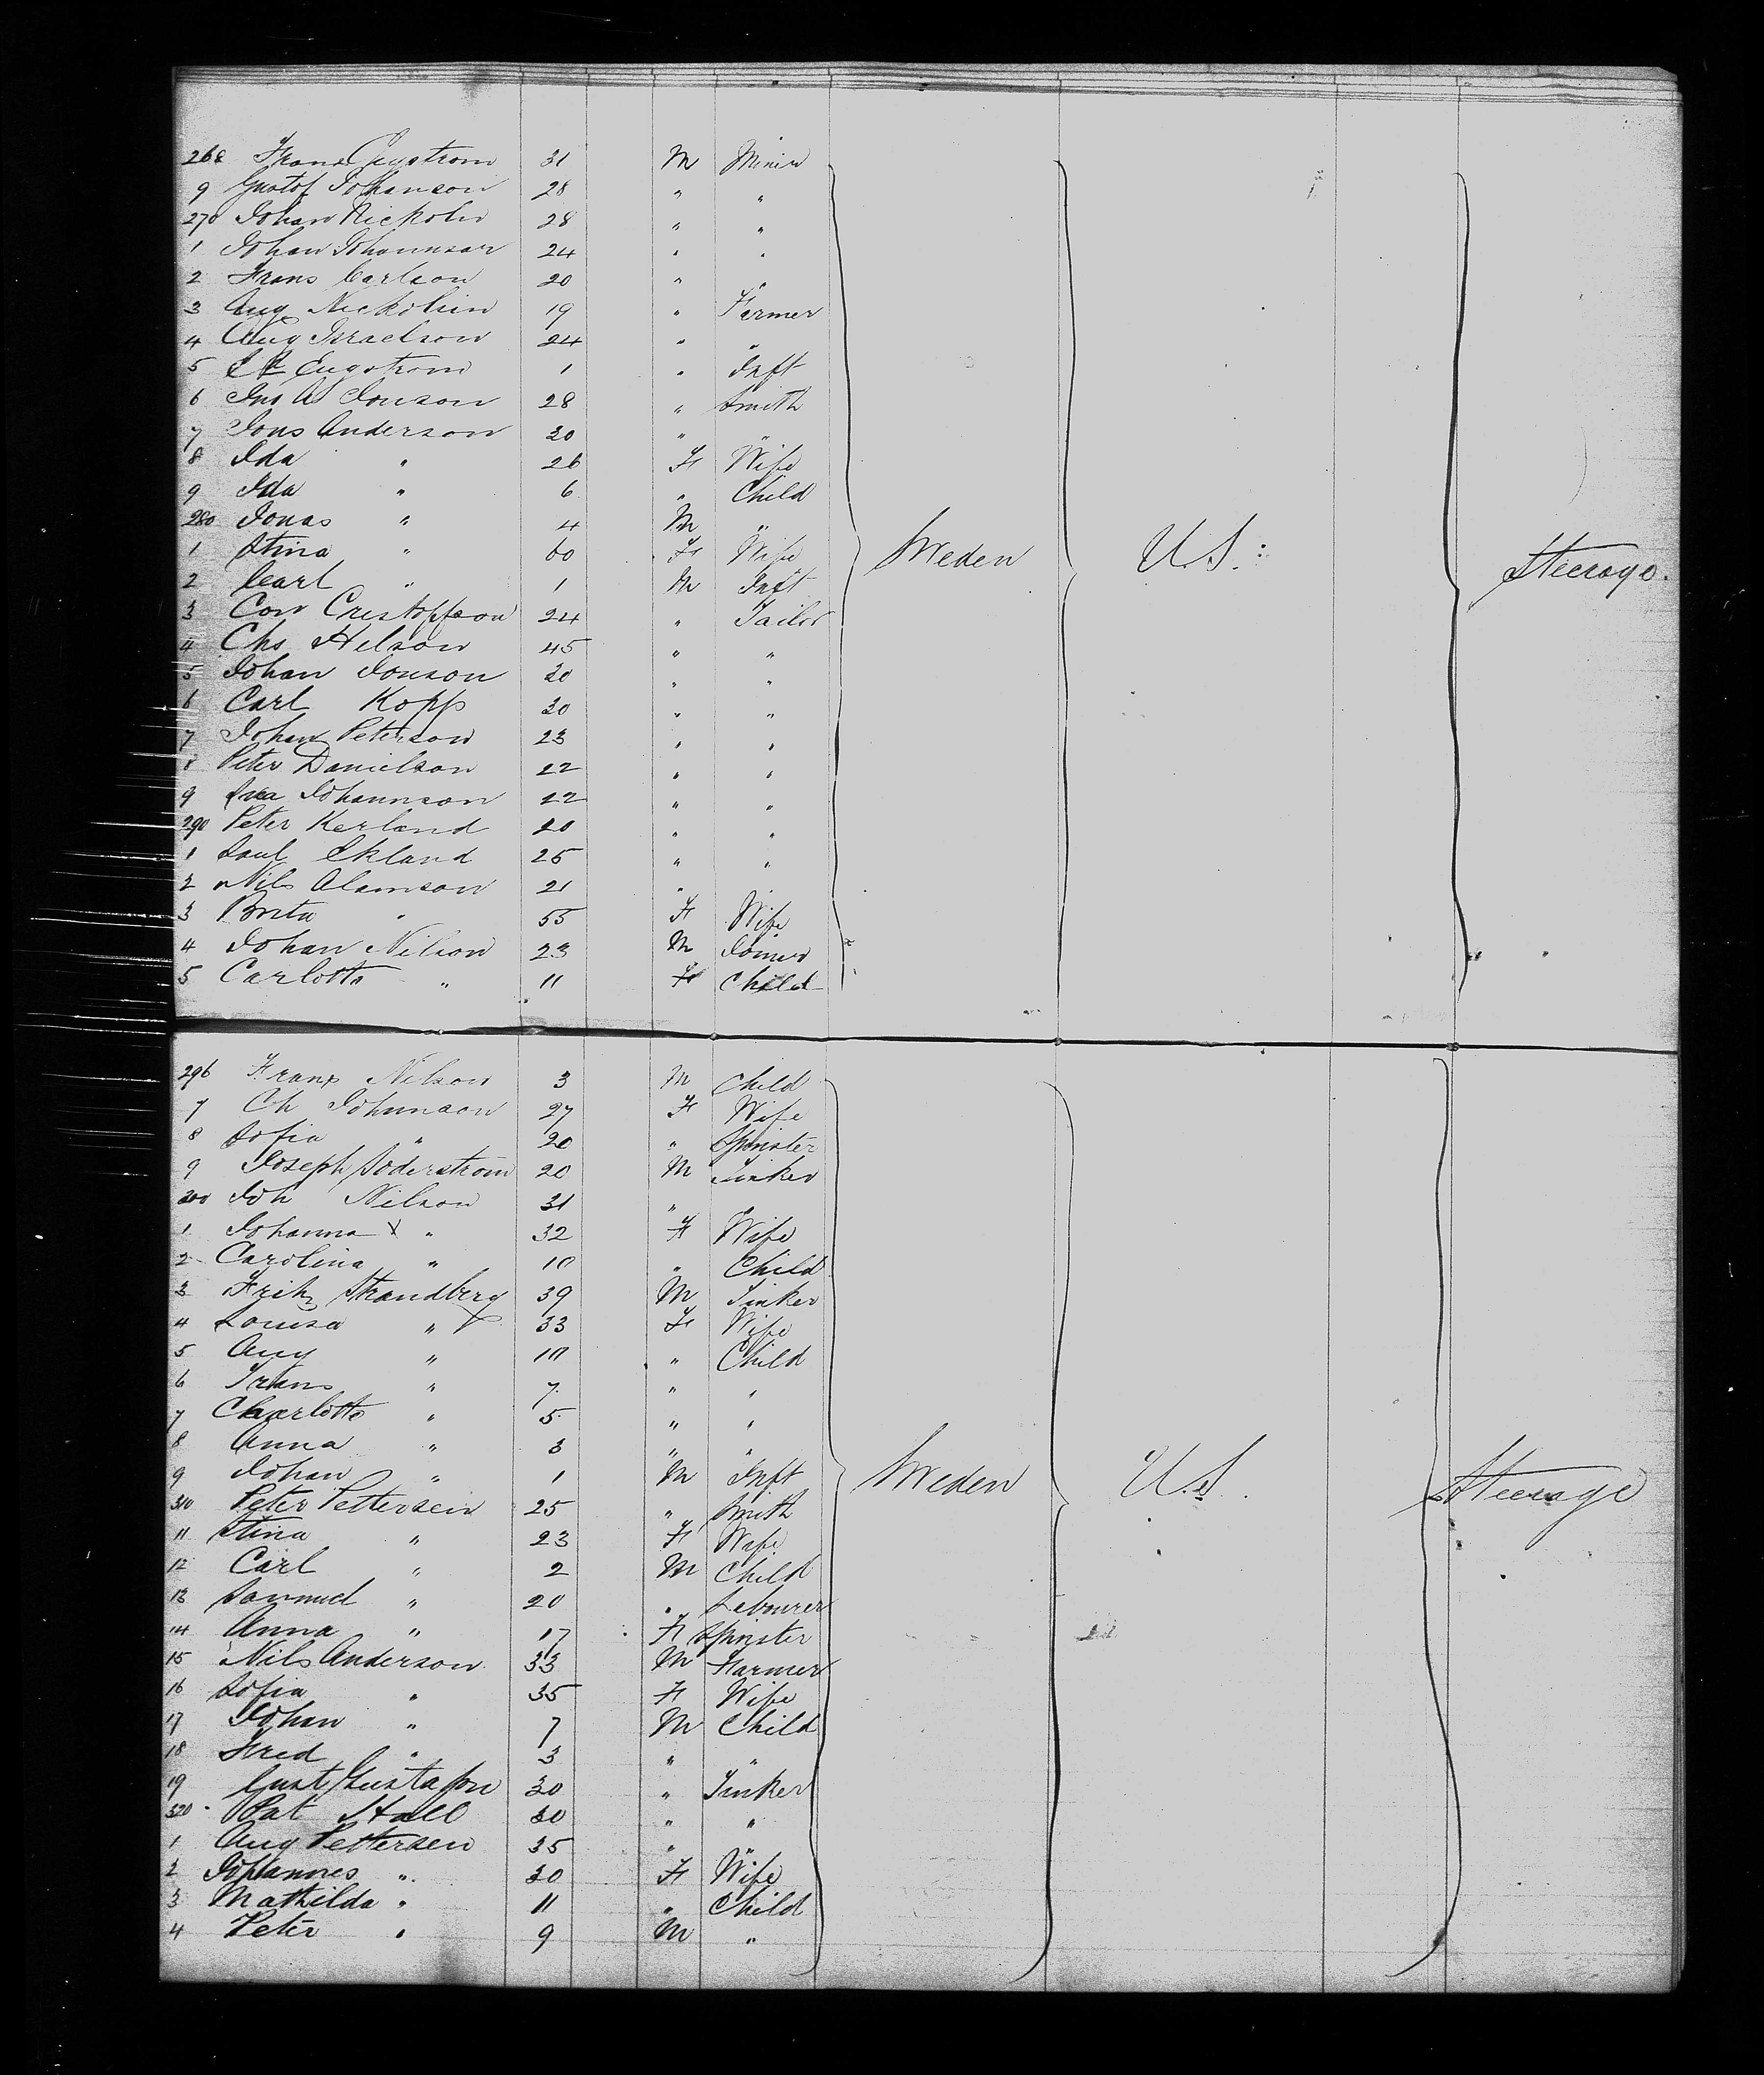 268 Frans Engstrom 31 M Miner
9 Gustof Johanson 28 " "
270 Johan Nickolin 28 " "
1 Johan Johannsar 24 " "
2 Frans Carlson 20 " "
3 Aug Nickolin 19 " Farmer
4 Aug Israelson 24 " "
5 Engstrom 1 " Inft
6 Jno A Jonson 28 " Smith
7 Jons Anderson 30 " "
8 Ida " 26 F Wife
9 Ida " 6 " Child
280 Jonas " 4 M "
1 Stina " 60 F Wife
2 Carl " 1 M Inft
3 Con Cristoffson 24 " Tailor
4 Chs Helson 45 " "
5 Johan Jonson 20 " "
6 Carl Kopp 30 " "
7 Johan Peterson 23 " "
8 Peter Danielson 22 " "
9 Johannson 22 " "
290 Peter Kerland 20 " "
1 Saul Ekland 25 " "
2 Nils Alamson 21 " "
3 Brita " 55 F Wife
4 Johan Nilson 23 M Joiner
5 Carlotta " 11 F Child
Sweden U.S. Steerage.
296 Frans Nilson 3 M Child
7 Ch Johnnson 27 F Wife
8 Sofia " 20 " Spinster
9 Joseph Soderstrom 20 M Tinker
300 Joh Nilson 31 " "
1 Johanna X " 32 F Wife
2 Carolina " 10 " Child
3 Fritz Strandberg 39 M Tinker
4 Louisa " X 33 F Wife
5 Aug " 10 " Child
6 Frans " 7 " "
7 Charlotte " 5 " "
8 Anna " 3 " "
9 Johan " 1 M Inft
310 Peter Pettersen 25 " Smith
11 Stina " 23 F Wife
12 Carl " 2 M Child
13 Samuel " 20 " Labourer
14 Anna " 17 F Spinster
15 Nils Anderson 33 M Farmer
16 Sofia " 35 F Wife
17 Johan " 7 M Child
18 Fred " 3 " "
19 Gust Gustafson 30 " Tinker
320 Pat Hall 30 " "
1 Aug Pettersen 35 " "
2 Johannes " 30 F Wife
3 Mathilda " 11 " Child
4 Peter " 9 M "
Sweden U.S. Steerage